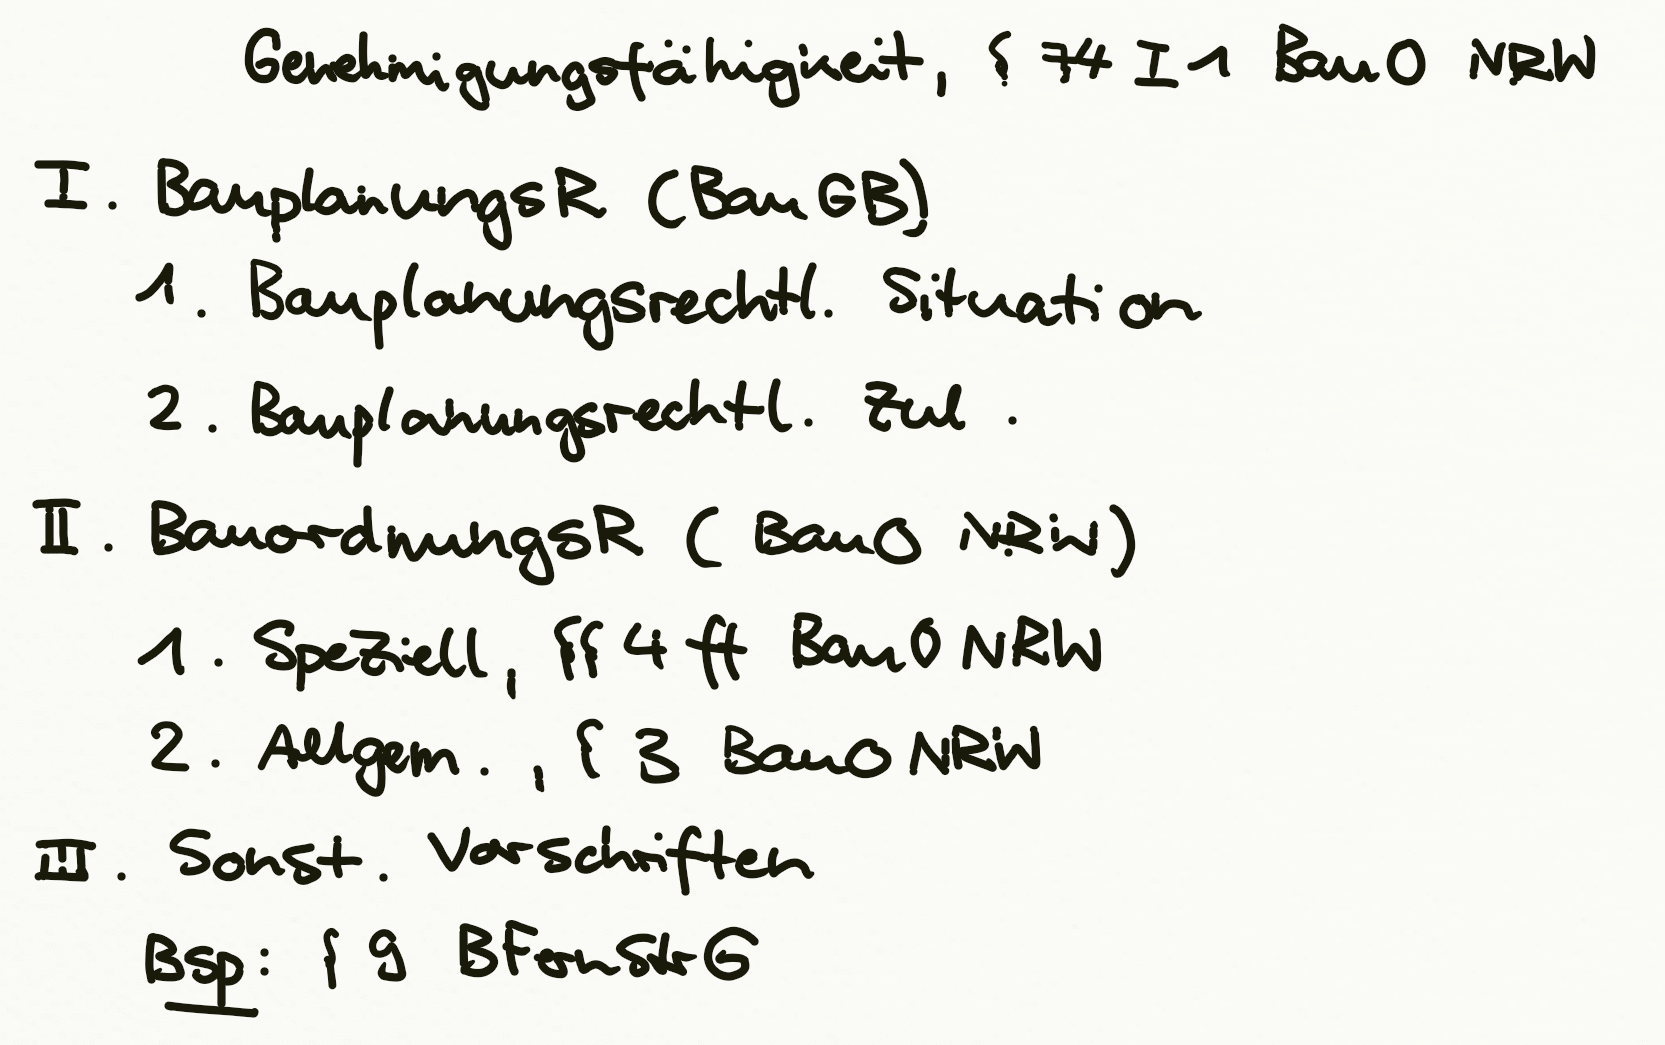 Genehmigungsfähigkeit, § 74 I 1 BauO NRW
I. BauplanungsR (BauGB)
1. Bauplanungsrechtl. Situation
2. Bauplanungsrechtl. Zul.
II. BauordnungsR (BauO NRW)
1. Speziell, §§ 4 ff BauO NRW
2. Allgem., § 3 BauO NRW
III. Sonst. Vorschriften
Bsp: § 9 BFernStrG